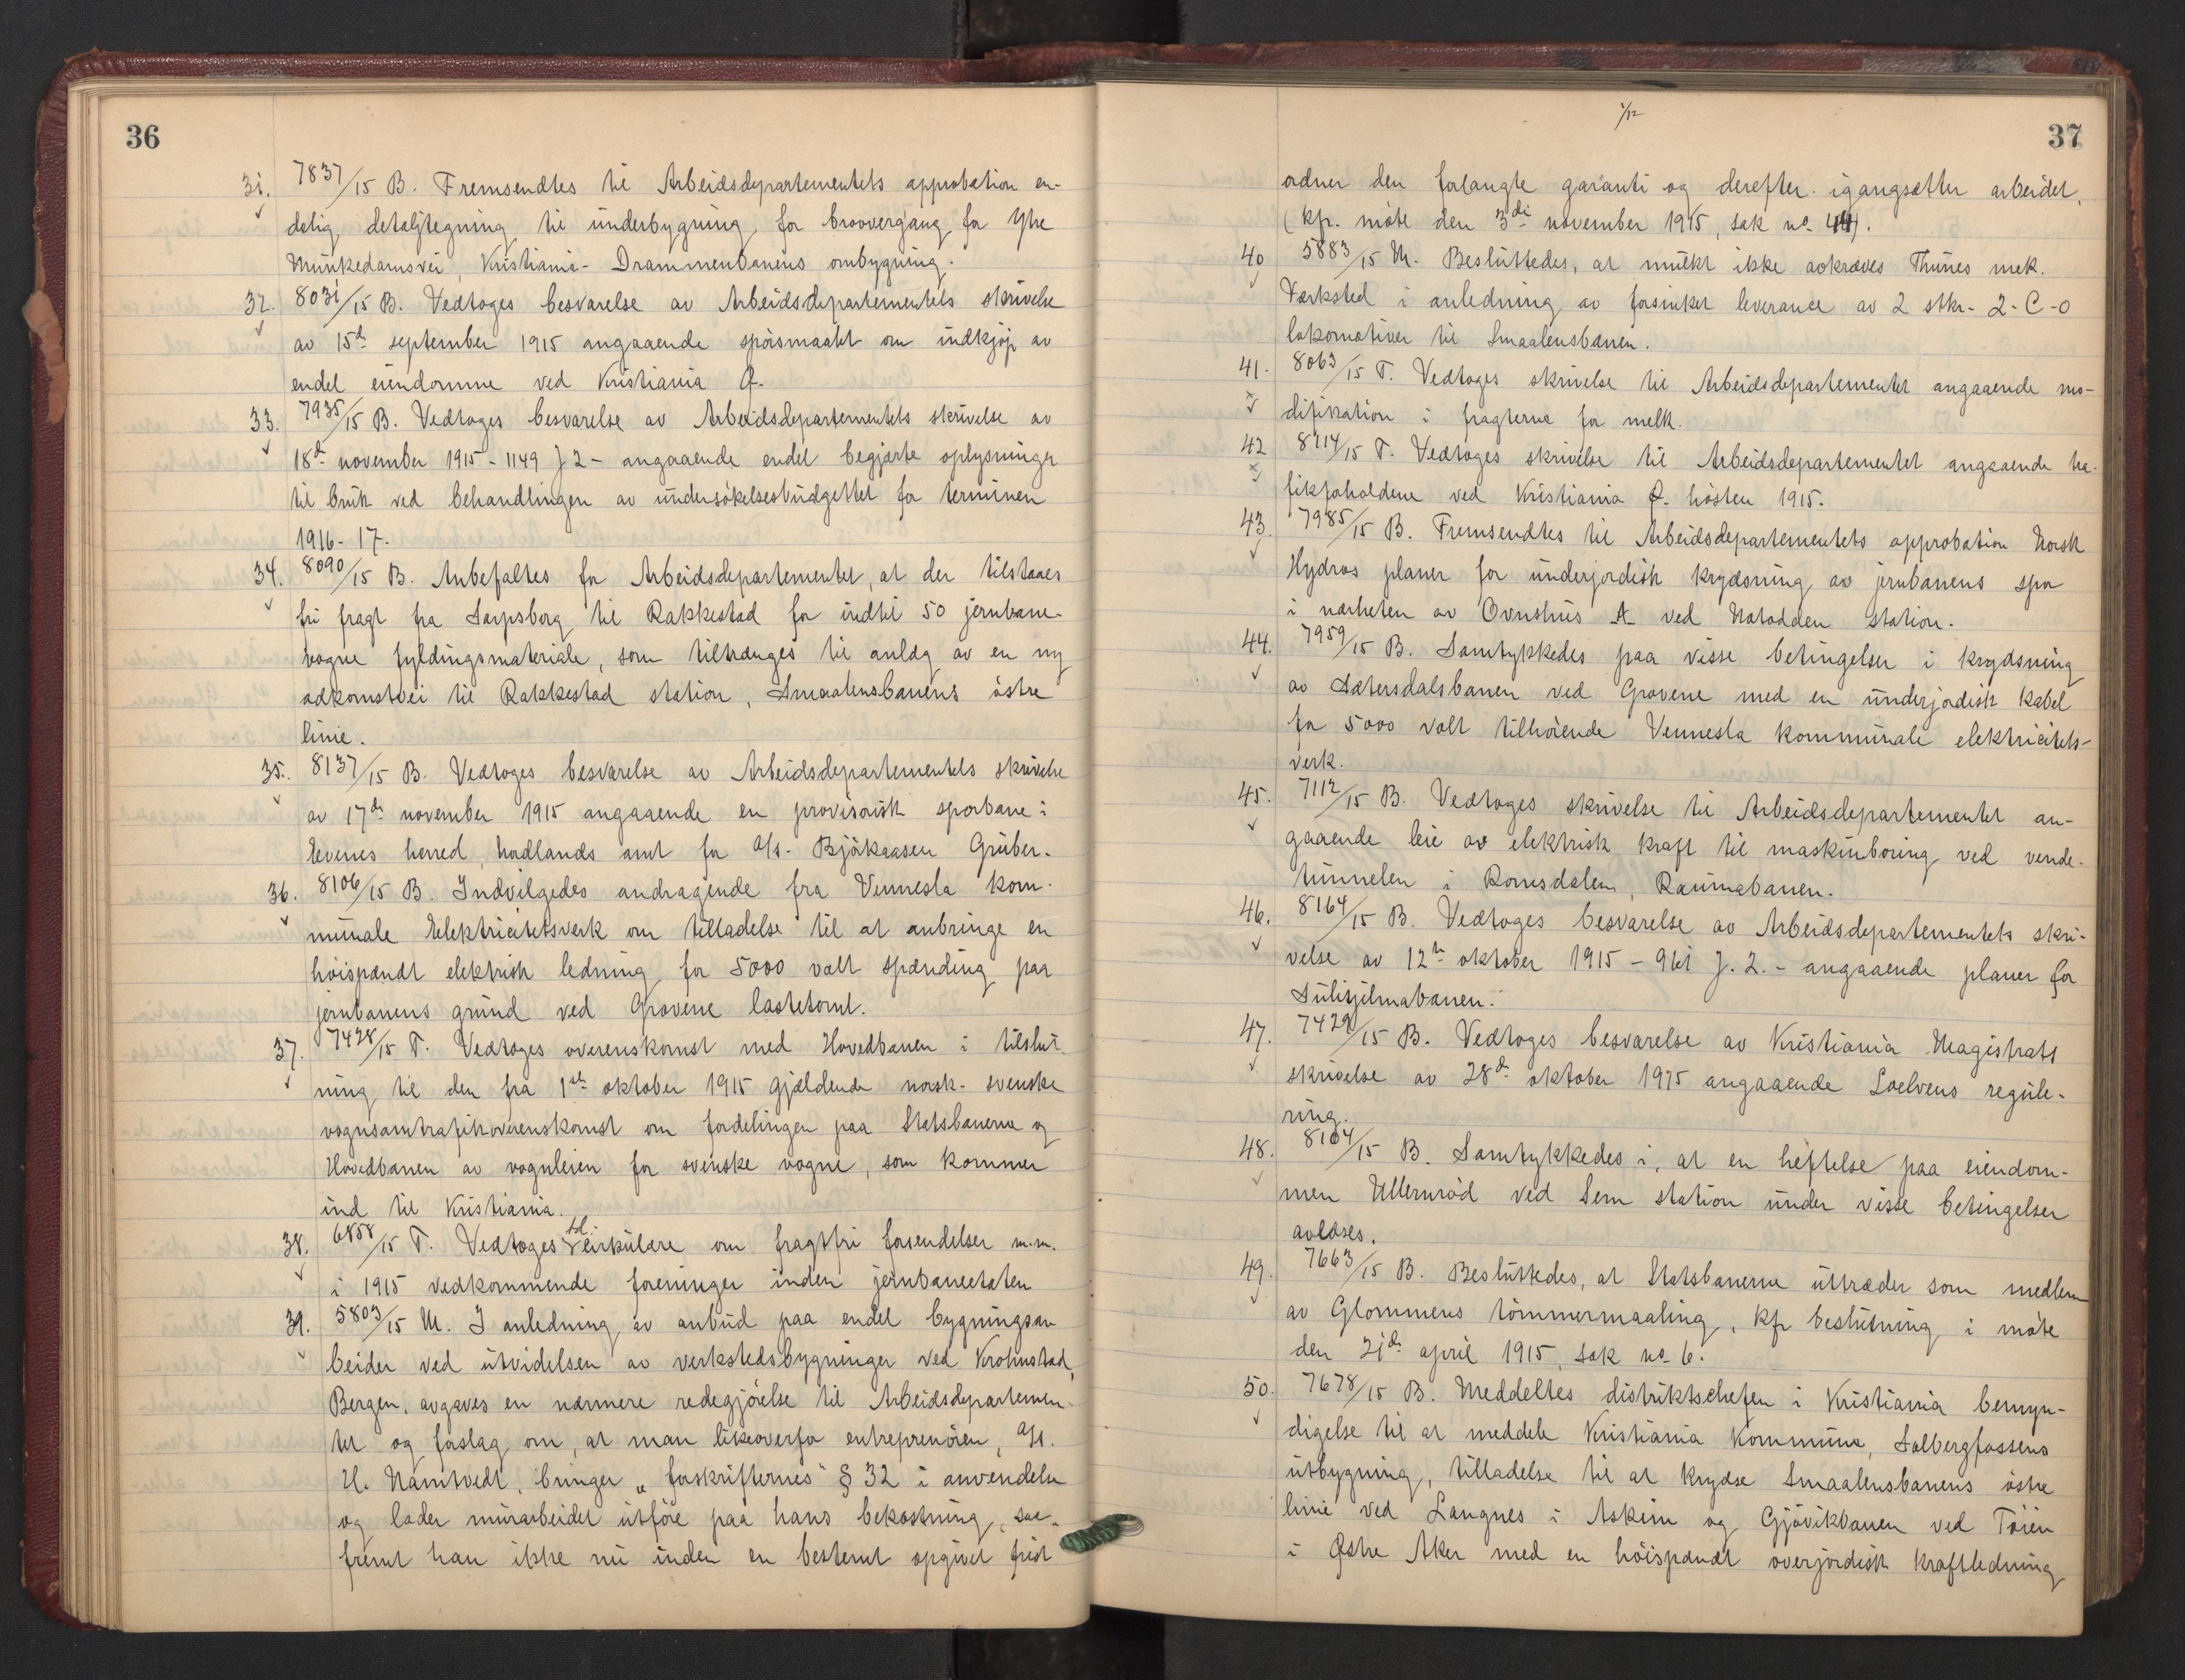 36
31. 7837/15 B. Fremsendtes til Arbeidsdepartementets approbation en-
delig detaljtegning til underbygning for broovergang for Ytre
Munkedamsvei, Kristiania-Drammenbanens ombygning.
32. 8031/15 B. Vedtoges besvarelse av Arbeidsdepartementets skrivelse
av 15de september 1915 angaaende spörsmaalet om indkjöp av
endel eiendomme ved Kristiania Ø.
33. 7935/15 B. Vedtoges besvarelse av Arbeidsdepartementets skrivelse av
18de november 1915 - 1149 J 2 - angaaende endel begjærte oplysninger
til bruk ved behandlingen av undersökelsesbudgettet for terminen
1916-17.
34. 8090/15 B. Anbefaltes for Arbeidsdepartementet, at der tilstaaes
fri fragt fra Sarpsborg til Rakkestad for indtil 50 jernbane-
vogne fyldingsmateriale, som tiltrænges til anlæg av en ny
adkomstvei til Rakkestad station, Smaalensbanens östre
linie.
35. 8137/15 B. Vedtoges besvarelse av Arbeidsdepartementets skrivelse
av 17de november 1915 angaaende en provisorisk sporbane i
Evenes herred, Nordlands amt for A/S. Bjökaasen Gruber.
36. 8106/15 B. Indvilgedes andragende fra Vennesla kom-
munale Elektricitetsverk om tilladelse til at anbringe en
höispændt elektrisk ledning for 5000 volt spænding paa
jernbanens grund ved Grovene lastetomt.
37. 7428/15 T. Vedtoges overenskomst med Hovedbanen i tilslut-
ning til den fra 1ste oktober 1915 gjældende norsk-svenske
vognsamtrafikoverenskomst om fordelingen paa Statsbanerne og
Hovedbanen av vognleien for svenske vogne, som kommer
ind til Kristiania.
38. 6858/15 T. Vedtoges td. cirkulære om fragtfri forsendelser m.m.
i 1915 vedkommende foreninger inden jernbaneetaten
39. 5803/15 M. I anledning av anbud paa endel bygningsar-
beider ved utvidelsen av verkstedsbygninger ved Kronstad,
Bergen, avgaves en nærmere redegjörelse til Arbeidsdepartemen-
tet og forslag om, at man likeoverfor entreprenören, A/S.
H. Namtvedt, bringer „forskrifternes" § 32 i anvendelse
og lader murarbeidet utföre paa hans bekostning, saa-
fremt han ikke nu inden en bestemt opgivet frist
1/12
37
ordner den forlangte garanti og derefter igangsætter arbeidet.
(kfr. möte den 3die november 1915, sak no. 44).
40 5883/15 M. Besluttedes, at mulkt ikke avkræves Thunes mek.
Værksted i anledning av forsinket leverance av 2 stkr. 2-C-0
lokomotiver til Smaalensbanen.
41. 8063/15 T. Vedtoges skrivelse til Arbeidsdepartementet angaaende mo-
difikation i fragterne for melk.
42 8114/15 T. Vedtoges skrivelse til Arbeidsdepartementet angaaende tra-
fikforholdene ved Kristiania Ø. hösten 1915.
43. 7985/15 B. Fremsendtes til Arbeidsdepartementets approbation Norsk
Hydros planer for underjordisk krydsning av jernbanens spor
i nærheten av Ovnshus A ved Notodden station.
44. 7959/15 B. Samtykkedes paa visse betingelser i krydsning
av Sætersdalsbanen ved Grovene med en underjordisk kabel
for 5000 volt tilhörende Vennesla kommunale elektricitets-
verk.
45. 7112/15 B. Vedtoges skrivelse til Arbeidsdepartementet an-
gaaende leie av elektrisk kraft til maskinboring ved vende-
tunnelen i Romsdalen, Raumabanen.
46. 8164/15 B. Vedtoges besvarelse av Arbeidsdepartementets skri-
velse av 12te oktober 1915 - 961 J. 2. - angaaende planer for
Sulitjelmabanen.
47. 7429/15 B. Vedtoges besvarelse av Kristiania Magistrats
skrivelse av 28de oktober 1915 angaaende Loelvens regule-
ring.
48. 8104/15 B. Samtykkedes i, at en heftelse paa eiendom-
men Ullernröd ved Sem station under visse betingelser
avlöses.
49. 7663/15 B. Besluttedes, at Statsbanerne uttræder som medlem
av Glommens tömmermaaling, kfr beslutning i möte
den 21de april 1915, sak no 6.
50. 7678/15 B. Meddeltes distriktschefen i Kristiania bemyn-
digelse til at meddele Kristiania Kommune, Solbergfossens
utbygning, tilladelse til at krydse Smaalensbanens östre
linie ved Langnes i Askim og Gjövikbanen ved Töien
i Østre Aker med en höispændt overjordisk kraftledning